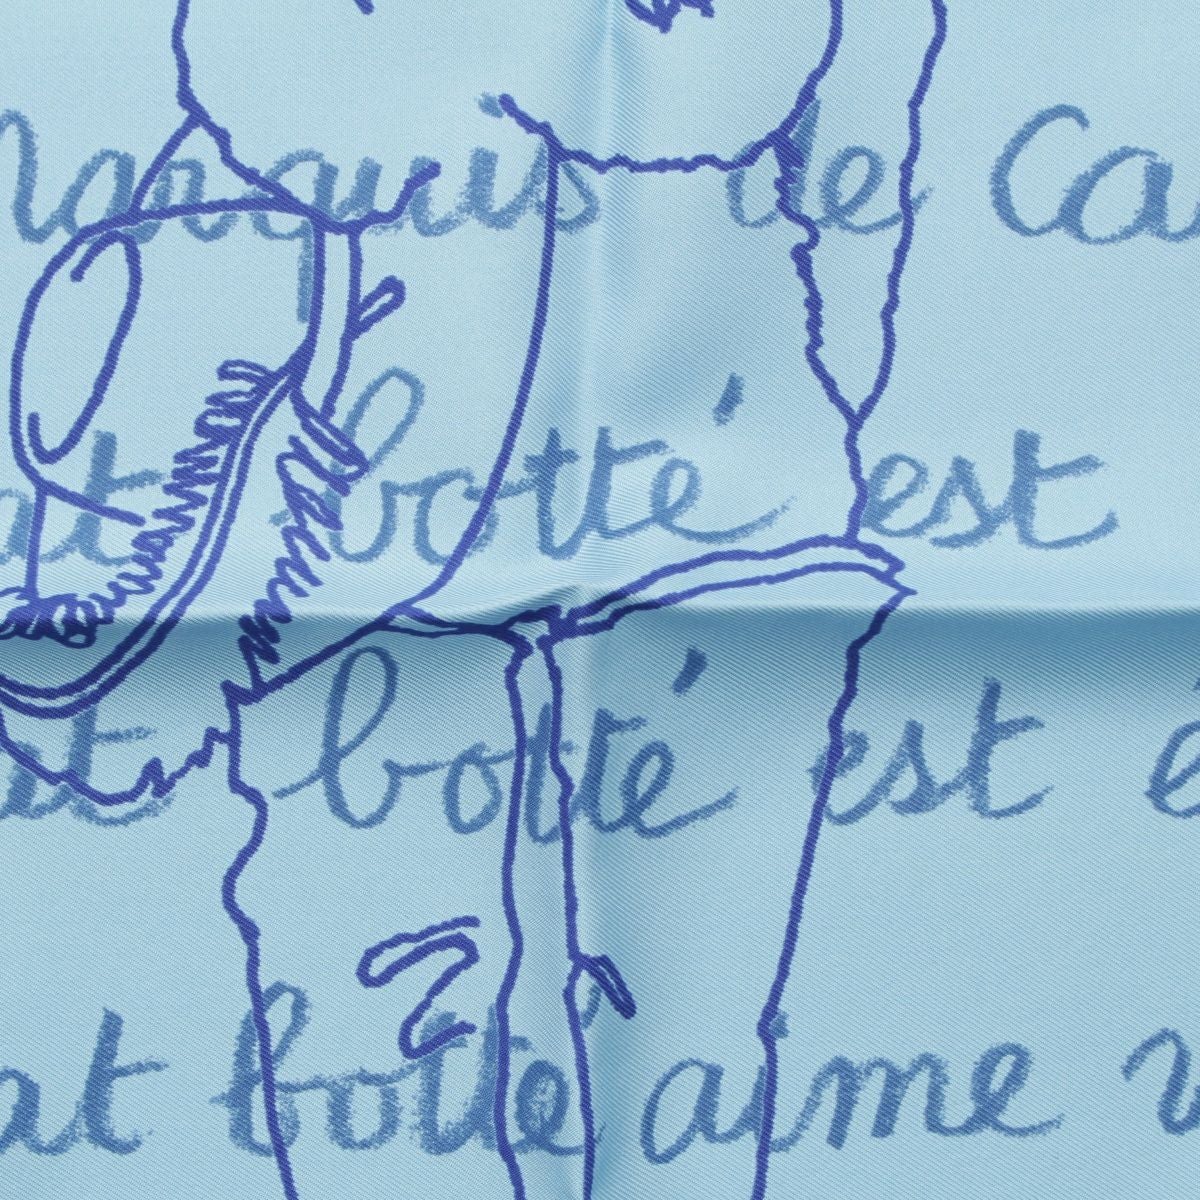 Marquis de Ca
at botté est
at botté est é
at botté aime v